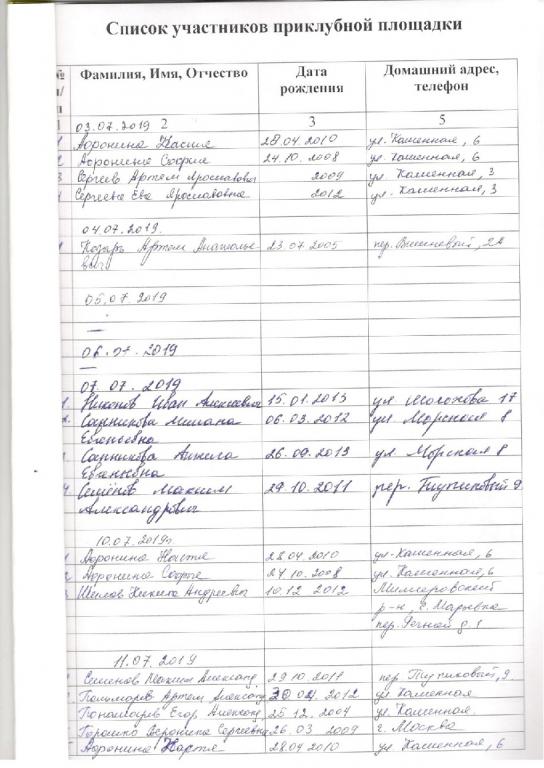 Список участников приклубной площадки
№ п/п Фамилия, Имя, Отчество Дата рождения Домашний адрес, телефон
1 2 3 5
03.07.2019
1 Доронина Настя 28.04.2010 ул. Каменная, 6
2 Доронина Софья 24.10.2008 ул. Каменная, 6
3 Сергеев Артем Ярославович 2009 ул. Каменная, 3
4 Сергеева Ева Ярославовна 2012 ул. Каменная, 3
04.07.2019.
1 Козырь Артем Анатолье- 23.07.2005 пер. Вишневый, 2а
вич
05.07.2019
—
06.07.2019
—
07.07.2019
1. Никонов Иван Алексеевич 15.01.2013 ул 17
2. Милана 06.03.2012 ул Морская 8
Евгеньевна
3 26.09.2013 ул Морская 8
Евгеньевна
4 Семёнов Максим 29.10.2011 пер. Тупиковый 9
Александрович
10.07.2019г
1 Доронина Настя 28.04.2010 ул. Каменная, 6
2 Доронина Софья 24.10.2008 ул. Каменная, 6
3 Никита Андреевич 10.12 2012 Миллеровский
р-н, с. Марьевка
пер. Речной д. 1
11.07.2019
Семенов Максим Александ. 29 10 2011 пер Тупиковый, 9
Артем Александ. 2012 ул Каменная
Пономарев Егор Александ 25 12. 2007 ул Каменная.
Вероника Сергеевна 26.03 2009 г. Москва
Доронина Настя 28.04 2010 ул Каменная, 6